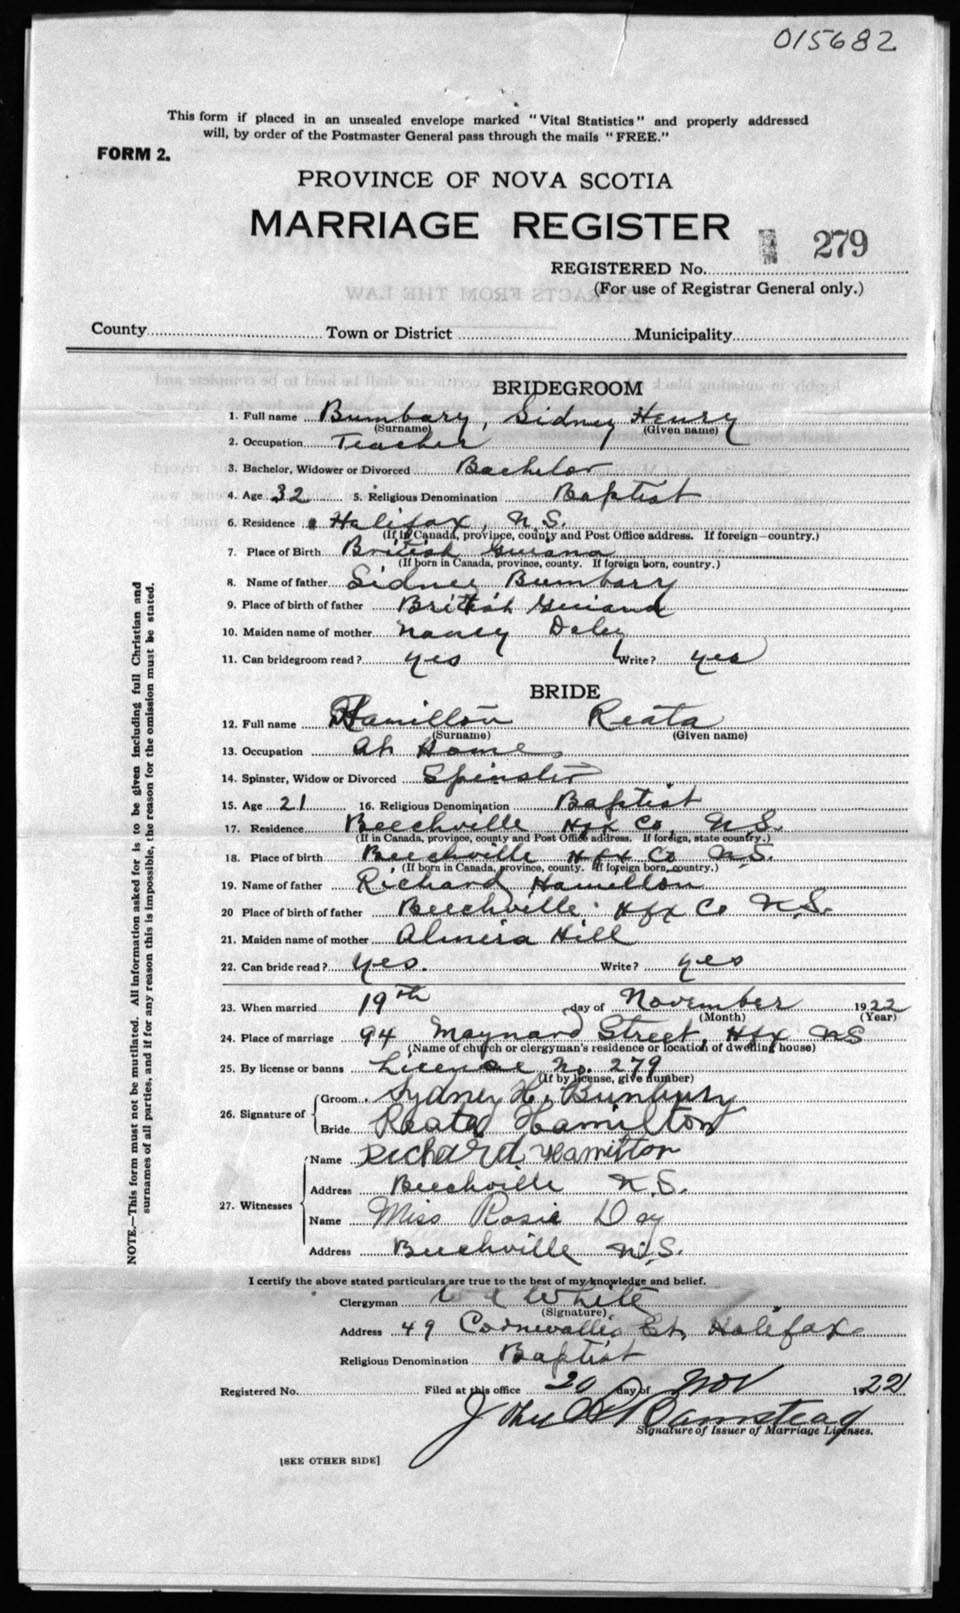 015682
This form if placed in an unsealed envelope marked "Vital Statistics" and properly addressed
will, by order of the Postmaster General pass through the mails "FREE."
FORM 2.
PROVINCE OF NOVA SCOTIA
MARRIAGE REGISTER
279
REGISTERED No.
(For use of Registrar General only.)
County Town or District Municipality
BRIDEGROOM
1. Full name Bumbary, Sidney Henry
(Surname) (Given name)
2. Occupation Teacher
3. Bachelor, Widower or Divorced Bachelor
4. Age 32 5. Religious Denomination Baptist
6. Residence Halifax, N.S.
(If in Canada, province, county and Post Office address. If foreign—country.)
7. Place of Birth British Guiana
(If born in Canada, province, county. If foreign born, country.)
8. Name of father Sidney Bumbary
9. Place of birth of father British Guiana
10. Maiden name of mother Nancy Daley
11. Can bridegroom read? yes Write? yes
BRIDE
12. Full name Hamilton Reata
(Surname) (Given name)
13. Occupation At Home
14. Spinster, Widow or Divorced Spinster
15. Age 21 16. Religious Denomination Baptist
17. Residence Beechville Hfx Co, N.S.
(If in Canada, province, county and Post Office address. If foreign, state country.)
18. Place of birth Beechville Hfx Co N.S.
(If born in Canada, province, county. If foreign born, country.)
19. Name of father Richard Hamilton
20 Place of birth of father Beechville Hfx Co N.S.
21. Maiden name of mother Almira Hill
22. Can bride read? yes. Write? yes
23. When married 19th day of November 1922
(Month) (Year)
24. Place of marriage 94 Maynard Street, Hfx NS
(Name of church or clergyman's residence or location of dwelling house)
25. By license or banns License No. 279
(If by license, give number)
26. Signature of Groom Sydney H. Bunbury
Bride Reata Hamilton
27. Witnesses Name Richard Hamilton
Address Beechville N.S.
Name Miss Rosie Day
Address Beechville N.S.
I certify the above stated particulars are true to the best of my knowledge and belief.
Clergyman W A White
(Signature)
Address 49 Cornwallis St, Halifax
Religious Denomination Baptist
Registered No. Filed at this office 20 day of Nov 1922
John Barnstead
Signature of Issuer of Marriage Licenses.
[SEE OTHER SIDE]
NOTE.—This form must not be mutilated. All information asked for is to be given including full Christian and
surnames of all parties, and if for any reason this is impossible, the reason for the omission must be stated.